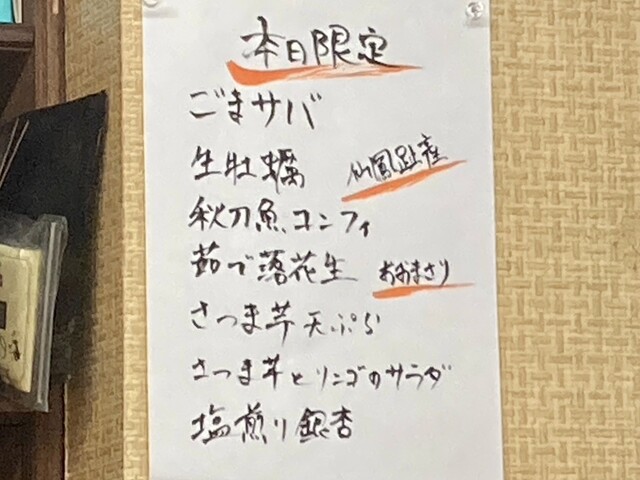 本日限定
ごまサバ
生牡蠣 仙鳳趾産
秋刀魚コンフィ
茹で落花生 おおまさり
さつま芋天ぷら
さつま芋とリンゴのサラダ
塩煎り銀杏